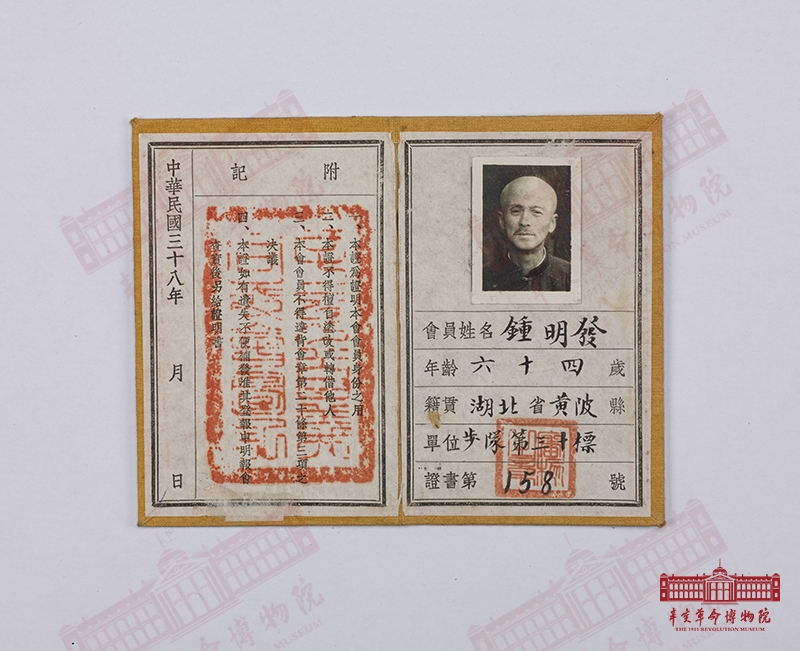 會員姓名 鍾明發
年齡 六十四 歲
籍貫 湖北省黃陂縣
單位 步隊第三十標
證書第 158 號
附記
一、本證為證明本會會員身份之用
二、本證不得擅自塗改或轉借他人
三、本會會員不得違背會章第二十條第三項之
決議
四、本證如有遺失不便補發准其登報申明報會
查實後另給證明書
中華民國三十八年 月 日
辛亥革命博物院
THE 1911 REVOLUTION MUSEUM